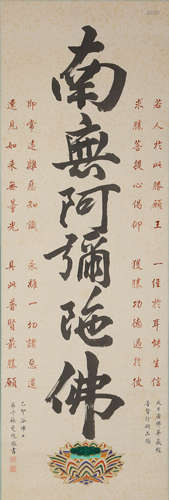 若人於此勝願王 一經於耳能生信
求勝菩提心渴仰 獲勝功德過於彼
大方廣佛華嚴經
普賢行願品偈
南無阿彌陁佛
即常遠離惡知識 永離一切諸惡道
速見如來無量光 具此普賢最勝願